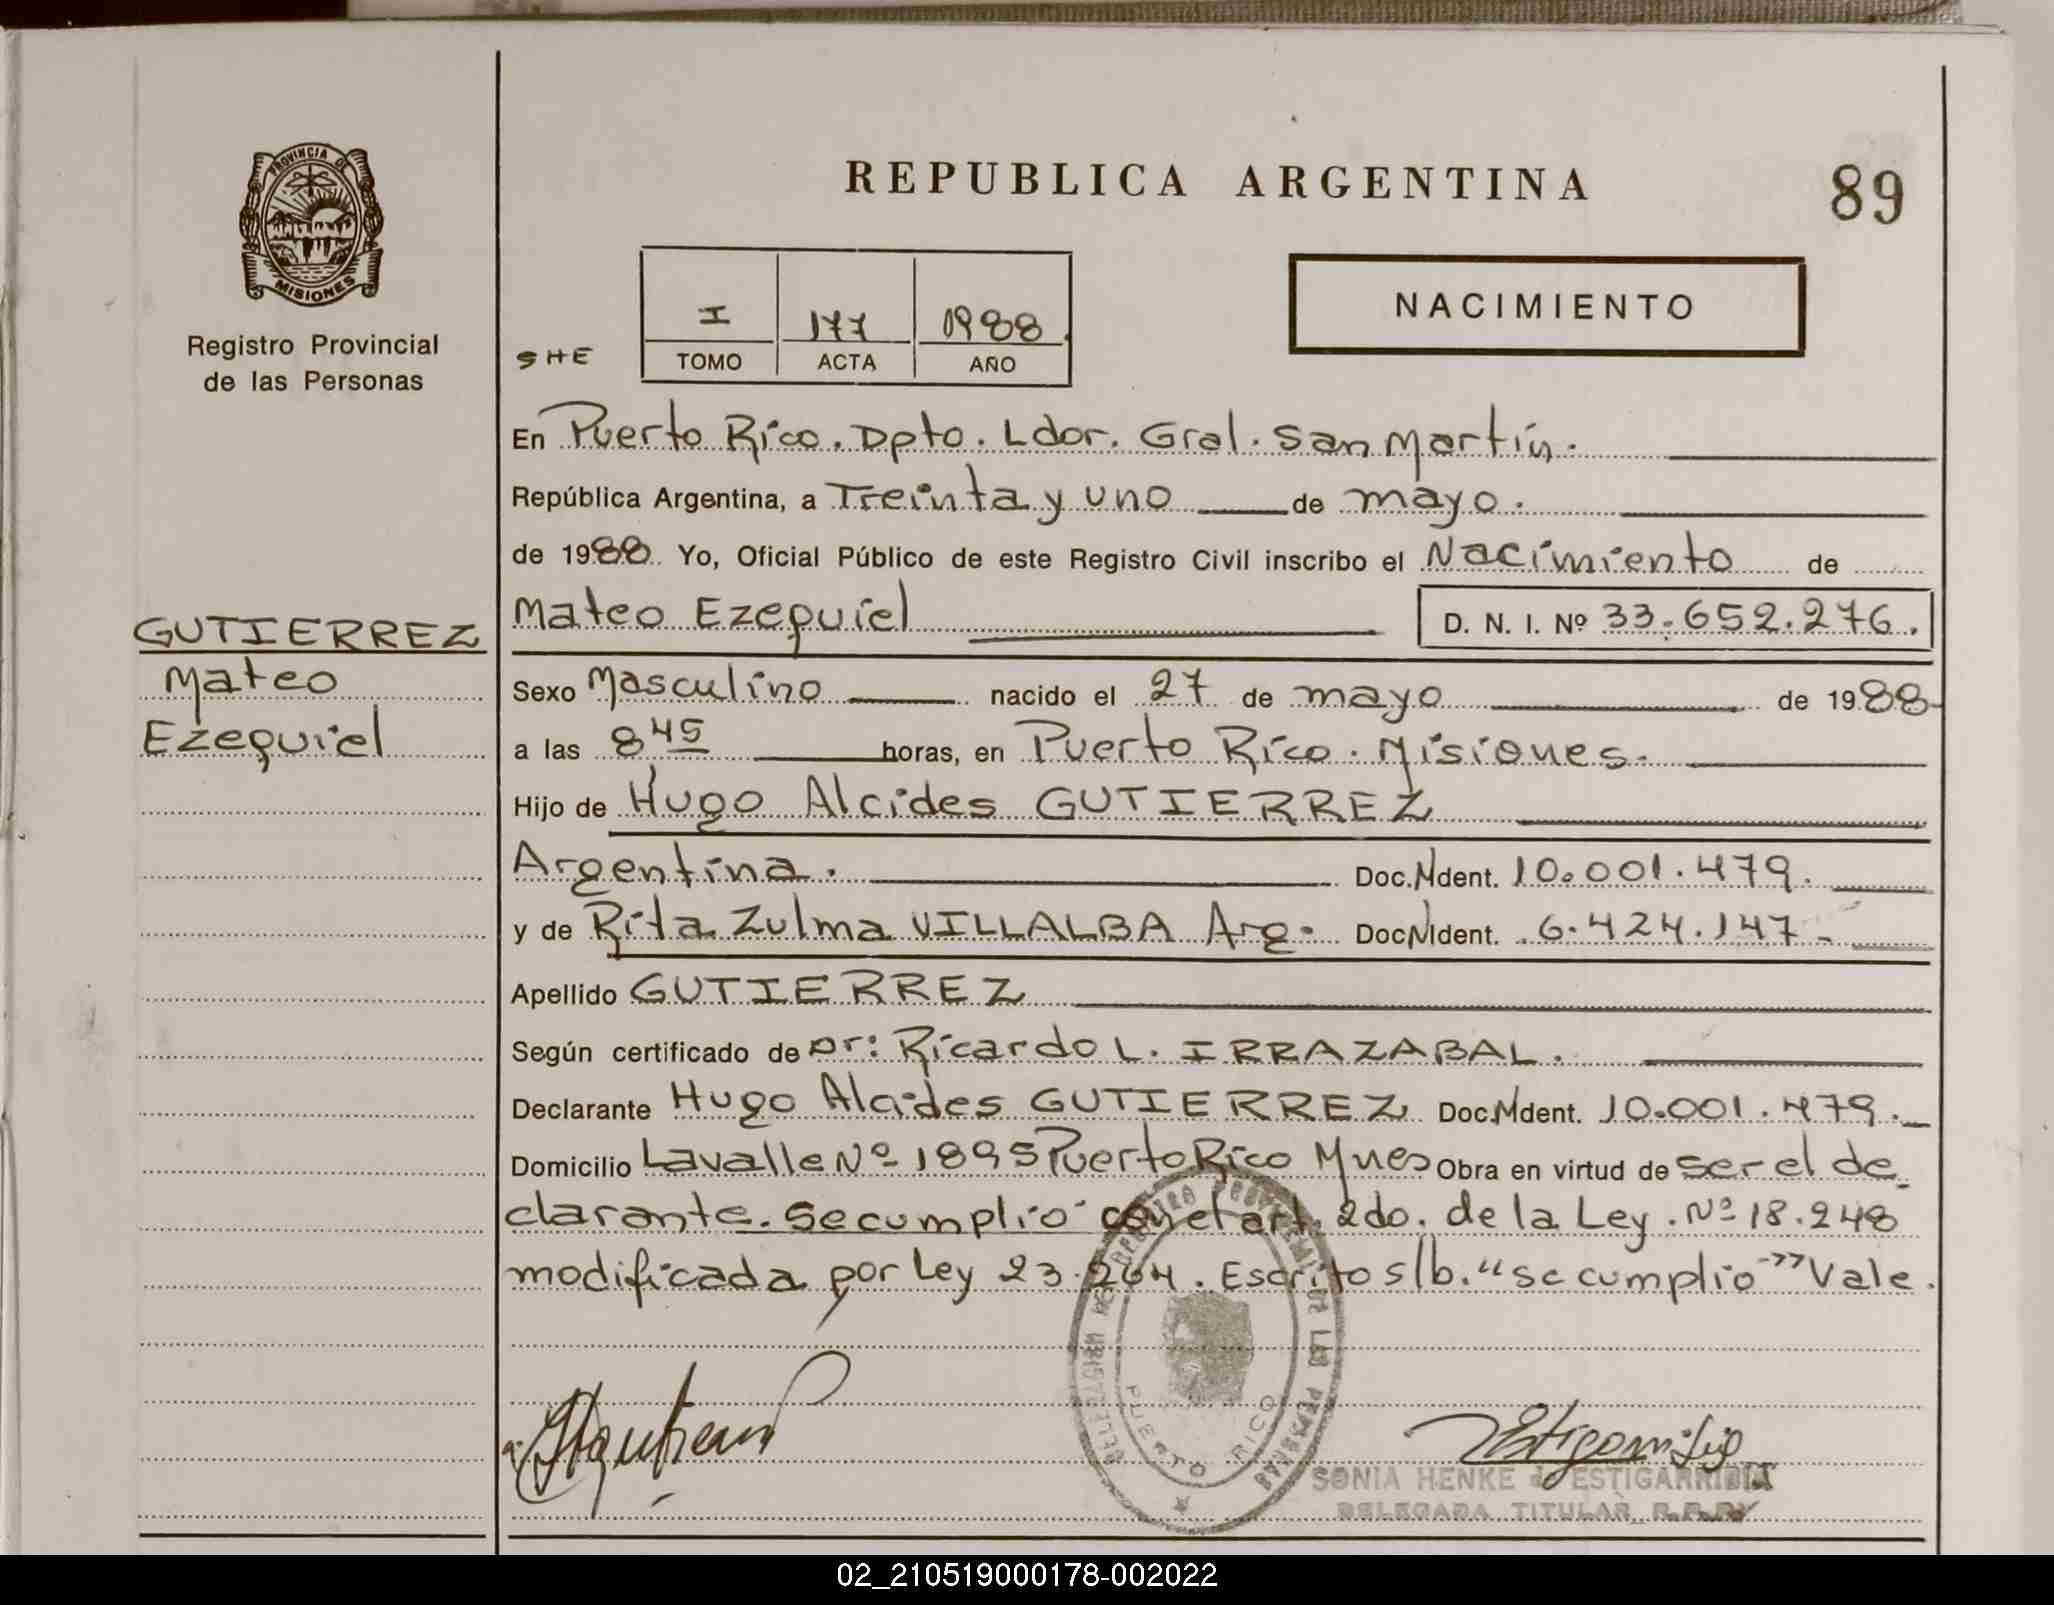 REPUBLICA ARGENTINA
89
PROVINCIA DE
MISIONES
Registro Provincial
de las Personas
SHE
I 177 1988
TOMO ACTA AÑO
NACIMIENTO
En Puerto Rico. Dpto. Ldor. Gral. San Martín.
República Argentina, a Treinta y uno de mayo.
de 1988 Yo, Oficial Público de este Registro Civil inscribo el Nacimiento de
GUTIERREZ
Mateo
Ezequiel
Mateo Ezequiel D. N. I. Nº 33.652.276.
Sexo Masculino nacido el 27 de mayo de 1988
a las 8 45 horas, en Puerto Rico. Misiones.
Hijo de Hugo Alcides GUTIERREZ
Argentina. Doc. Ident. 10.001.479.
y de Rita Zulma VILLALBA Arg. Doc. Ident. 6.424.147-
Apellido GUTIERREZ
Según certificado de Dr: Ricardo L. IRRAZABAL.
Declarante Hugo Alcides GUTIERREZ Doc. Ident. 10.001.479.
Domicilio Lavalle Nº 1895 Puerto Rico Mnes Obra en virtud de ser el de
clarante. Se cumplió con el art. 2do. de la Ley. Nº 18.248
modificada por Ley 23.264. Escrito s/b. "se cumplio" Vale.
PUERTO RICO
SONIA HENKE de ESTIGARRIBIA
DELEGADA TITULAR R.P.P.
02_210519000178-002022